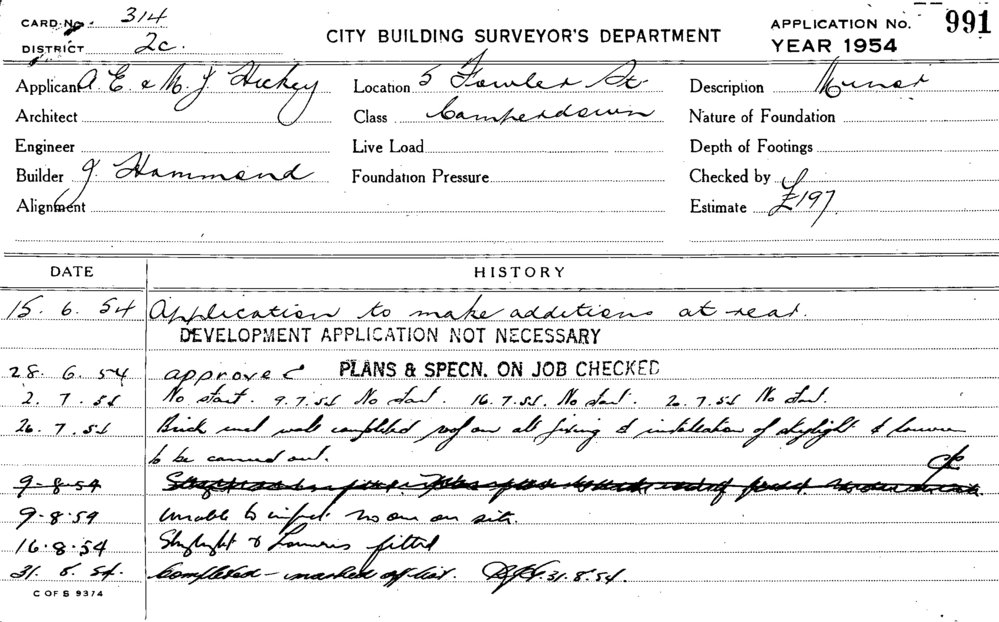 CARD No. 314
DISTRICT 2c.
CITY BUILDING SURVEYOR'S DEPARTMENT
APPLICATION No. 991
YEAR 1954
Applicant A. E. & M. J. Hickey
Location 5 Fowler St
Description Minor
Architect
Class Camperdown
Nature of Foundation
Engineer
Live Load
Depth of Footings
Builder J. Hammond
Foundation Pressure
Checked by
Alignment
Estimate £197
DATE HISTORY
15. 6. 54 Application to make additions at rear.
DEVELOPMENT APPLICATION NOT NECESSARY
28. 6. 54 approved PLANS & SPECN. ON JOB CHECKED
2. 7. 54 No start. 9.7.54 No start. 16.7.54. No start. 20.7.54 No start.
26.7.54 Brick work walls completed roof on all fixing & installation of skylight & louvres
to be carried out.
9-8-54
9-8-54 Unable to inspect no one on site.
16.8.54 Skylight & Louvres fitted
31. 8. 54. Completed - marked off list. 31.8.54.
C OF S 9374